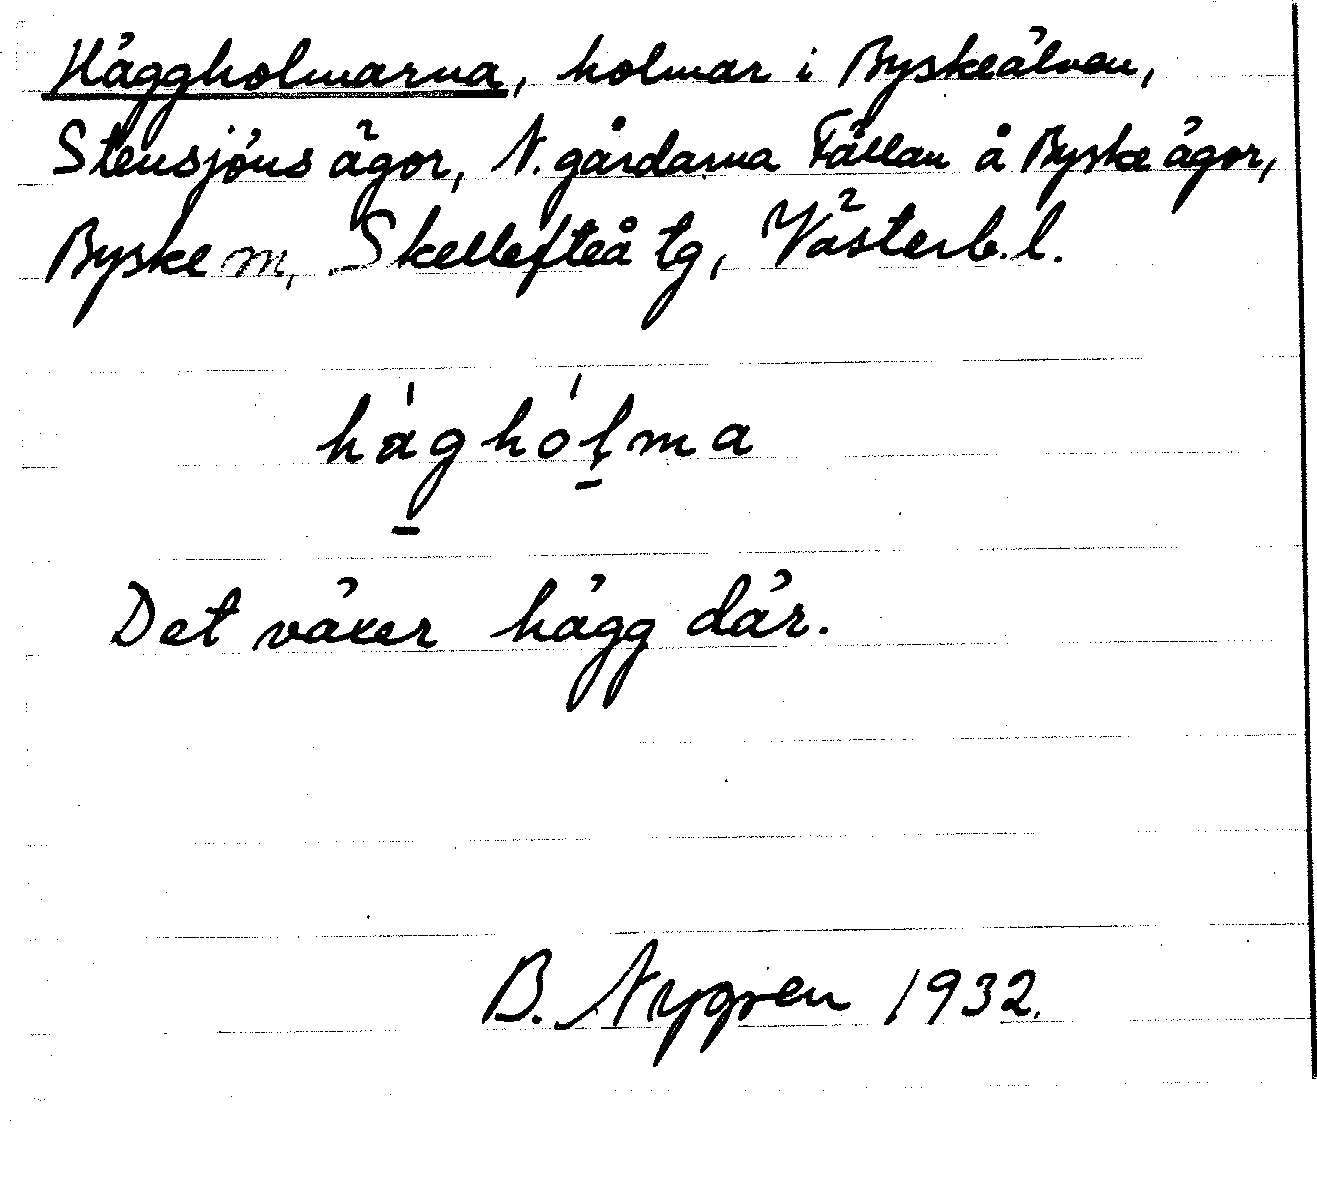 Häggholmarna, holmar i Byskeälven,
Stensjöns ägor, N. gårdarna Fällan å Byske ägor,
Byske m, Skellefteå tg, Västerb. l.
hàghólma
Det växer hägg där.
B. Nygren 1932.